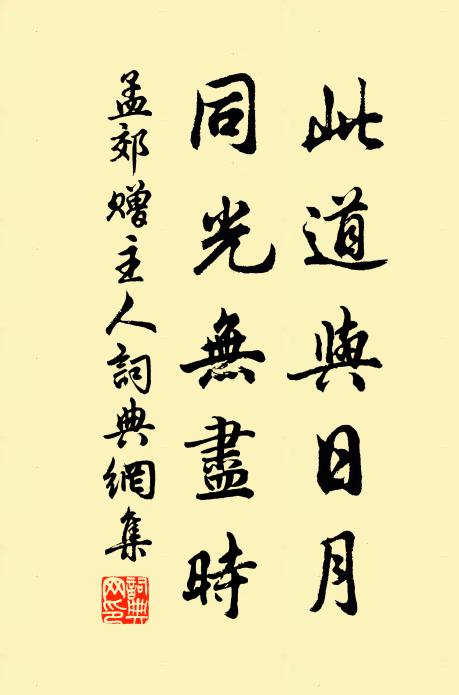 此道與日月
同光無盡時
孟郊贈主人詞典網集
詞典网印